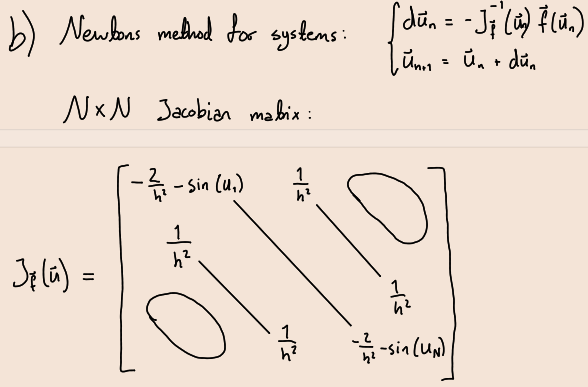 b) Newtons method for systems: { du⃗ₙ = -J_f⃗⁻¹(u⃗ₙ) f⃗(u⃗ₙ)
u⃗ₙ₊₁ = u⃗ₙ + du⃗ₙ
N×N Jacobian matrix:
-2/h² - sin(u₁) 1/h²
1/h²
J_f⃗(u⃗) =
1/h²
1/h² -2/h² - sin(u_N)